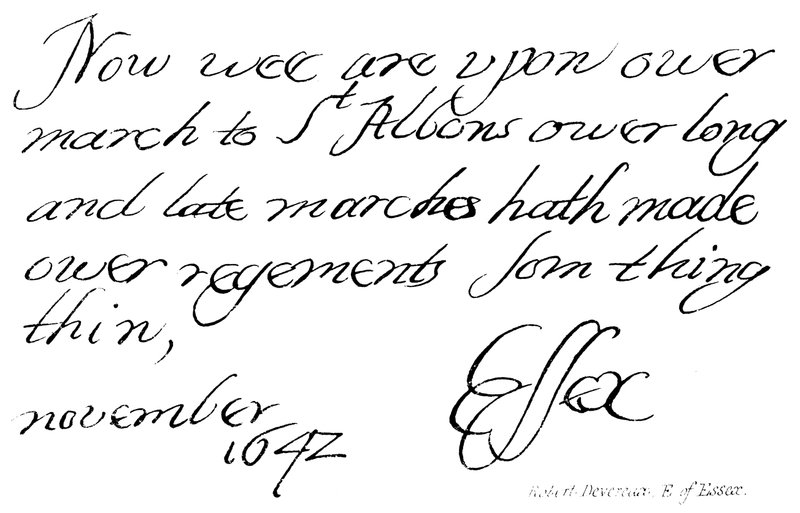 Now wee are vpon ower
march to St Albons ower long
and late marches hath made
ower regements som thing
thin,
november
1642
Essex
Robert Devereux, E. of Essex.